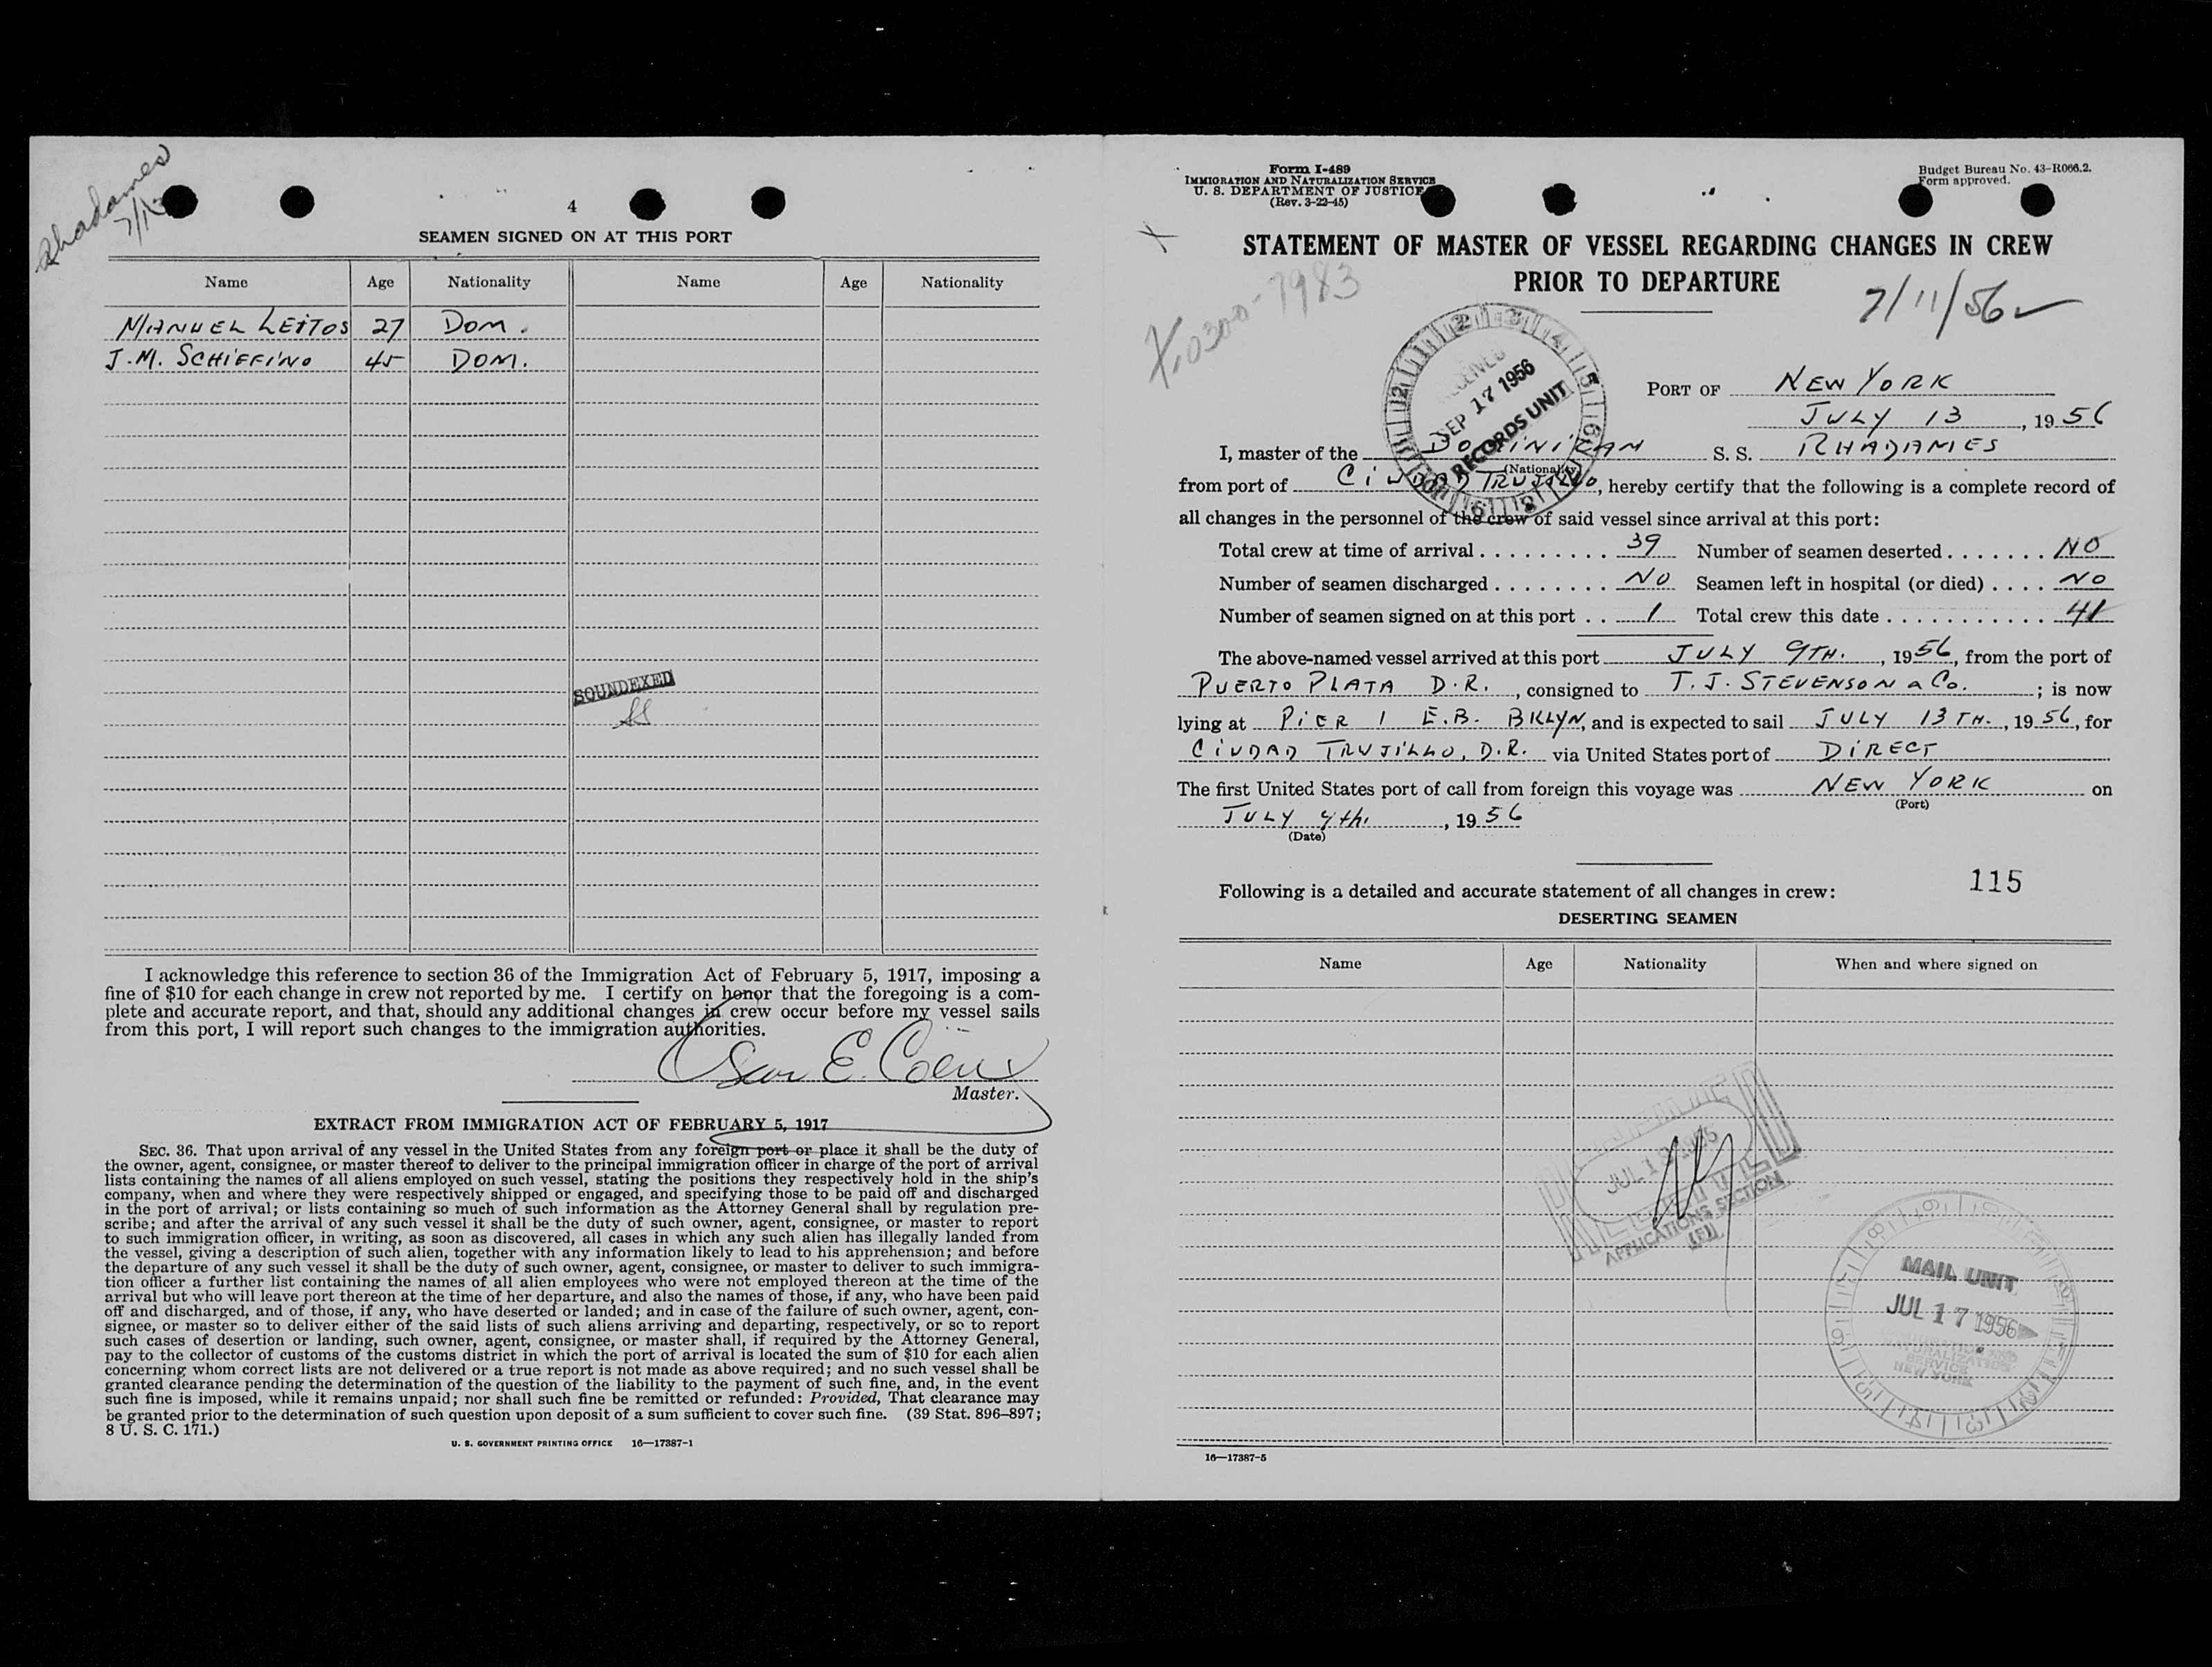 Rhadames
7/13
4
SEAMEN SIGNED ON AT THIS PORT
Name Age Nationality Name Age Nationality
MANUEL LEITOS 27 DOM.
J.M. SCHIFFINO 45 DOM.
SOUNDEXED
I acknowledge this reference to section 36 of the Immigration Act of February 5, 1917, imposing a
fine of $10 for each change in crew not reported by me. I certify on honor that the foregoing is a com-
plete and accurate report, and that, should any additional changes in crew occur before my vessel sails
from this port, I will report such changes to the immigration authorities.
Master.
EXTRACT FROM IMMIGRATION ACT OF FEBRUARY 5, 1917
SEC. 36. That upon arrival of any vessel in the United States from any foreign port or place it shall be the duty of
the owner, agent, consignee, or master thereof to deliver to the principal immigration officer in charge of the port of arrival
lists containing the names of all aliens employed on such vessel, stating the positions they respectively hold in the ship's
company, when and where they were respectively shipped or engaged, and specifying those to be paid off and discharged
in the port of arrival; or lists containing so much of such information as the Attorney General shall by regulation pre-
scribe; and after the arrival of any such vessel it shall be the duty of such owner, agent, consignee, or master to report
to such immigration officer, in writing, as soon as discovered, all cases in which any such alien has illegally landed from
the vessel, giving a description of such alien, together with any information likely to lead to his apprehension; and before
the departure of any such vessel it shall be the duty of such owner, agent, consignee, or master to deliver to such immigra-
tion officer a further list containing the names of all alien employees who were not employed thereon at the time of the
arrival but who will leave port thereon at the time of her departure, and also the names of those, if any, who have been paid
off and discharged, and of those, if any, who have deserted or landed; and in case of the failure of such owner, agent, con-
signee, or master so to deliver either of the said lists of such aliens arriving and departing, respectively, or so to report
such cases of desertion or landing, such owner, agent, consignee, or master shall, if required by the Attorney General,
pay to the collector of customs of the customs district in which the port of arrival is located the sum of $10 for each alien
concerning whom correct lists are not delivered or a true report is not made as above required; and no such vessel shall be
granted clearance pending the determination of the question of the liability to the payment of such fine, and, in the event
such fine is imposed, while it remains unpaid; nor shall such fine be remitted or refunded: Provided, That clearance may
be granted prior to the determination of such question upon deposit of a sum sufficient to cover such fine. (39 Stat. 896–897;
8 U. S. C. 171.)
U. S. GOVERNMENT PRINTING OFFICE 16—17387-1
Form I-489
IMMIGRATION AND NATURALIZATION SERVICE
U. S. DEPARTMENT OF JUSTICE
(Rev. 3-22-45)
Budget Bureau No. 43-R066.2.
Form approved.
STATEMENT OF MASTER OF VESSEL REGARDING CHANGES IN CREW
PRIOR TO DEPARTURE
0300-7983
7/11/56
SEP 17 1956
RECORDS UNIT
PORT OF NEW YORK
JULY 13, 1956
I, master of the DOMINICAN S. S. RHADAMES
(Nationality)
from port of CIUDAD TRUJILLO, hereby certify that the following is a complete record of
all changes in the personnel of the crew of said vessel since arrival at this port:
Total crew at time of arrival . . . . . . . . . 39 Number of seamen deserted . . . . . . . NO
Number of seamen discharged . . . . . . . . NO Seamen left in hospital (or died) . . . . NO
Number of seamen signed on at this port . . 1 Total crew this date . . . . . . . . . . . . 41
The above-named vessel arrived at this port JULY 9TH., 1956, from the port of
PUERTO PLATA D.R., consigned to T.J. STEVENSON & Co.; is now
lying at PIER 1 E.B. BKLYN, and is expected to sail JULY 13TH., 1956, for
CIUDAD TRUJILLO, D.R. via United States port of DIRECT
The first United States port of call from foreign this voyage was NEW YORK on
(Port)
JULY 9th., 1956
(Date)
115
Following is a detailed and accurate statement of all changes in crew:
DESERTING SEAMEN
Name Age Nationality When and where signed on
APPLICATIONS SECTION
MAIL UNIT
JUL 17 1956
NEW YORK
16—17387-5